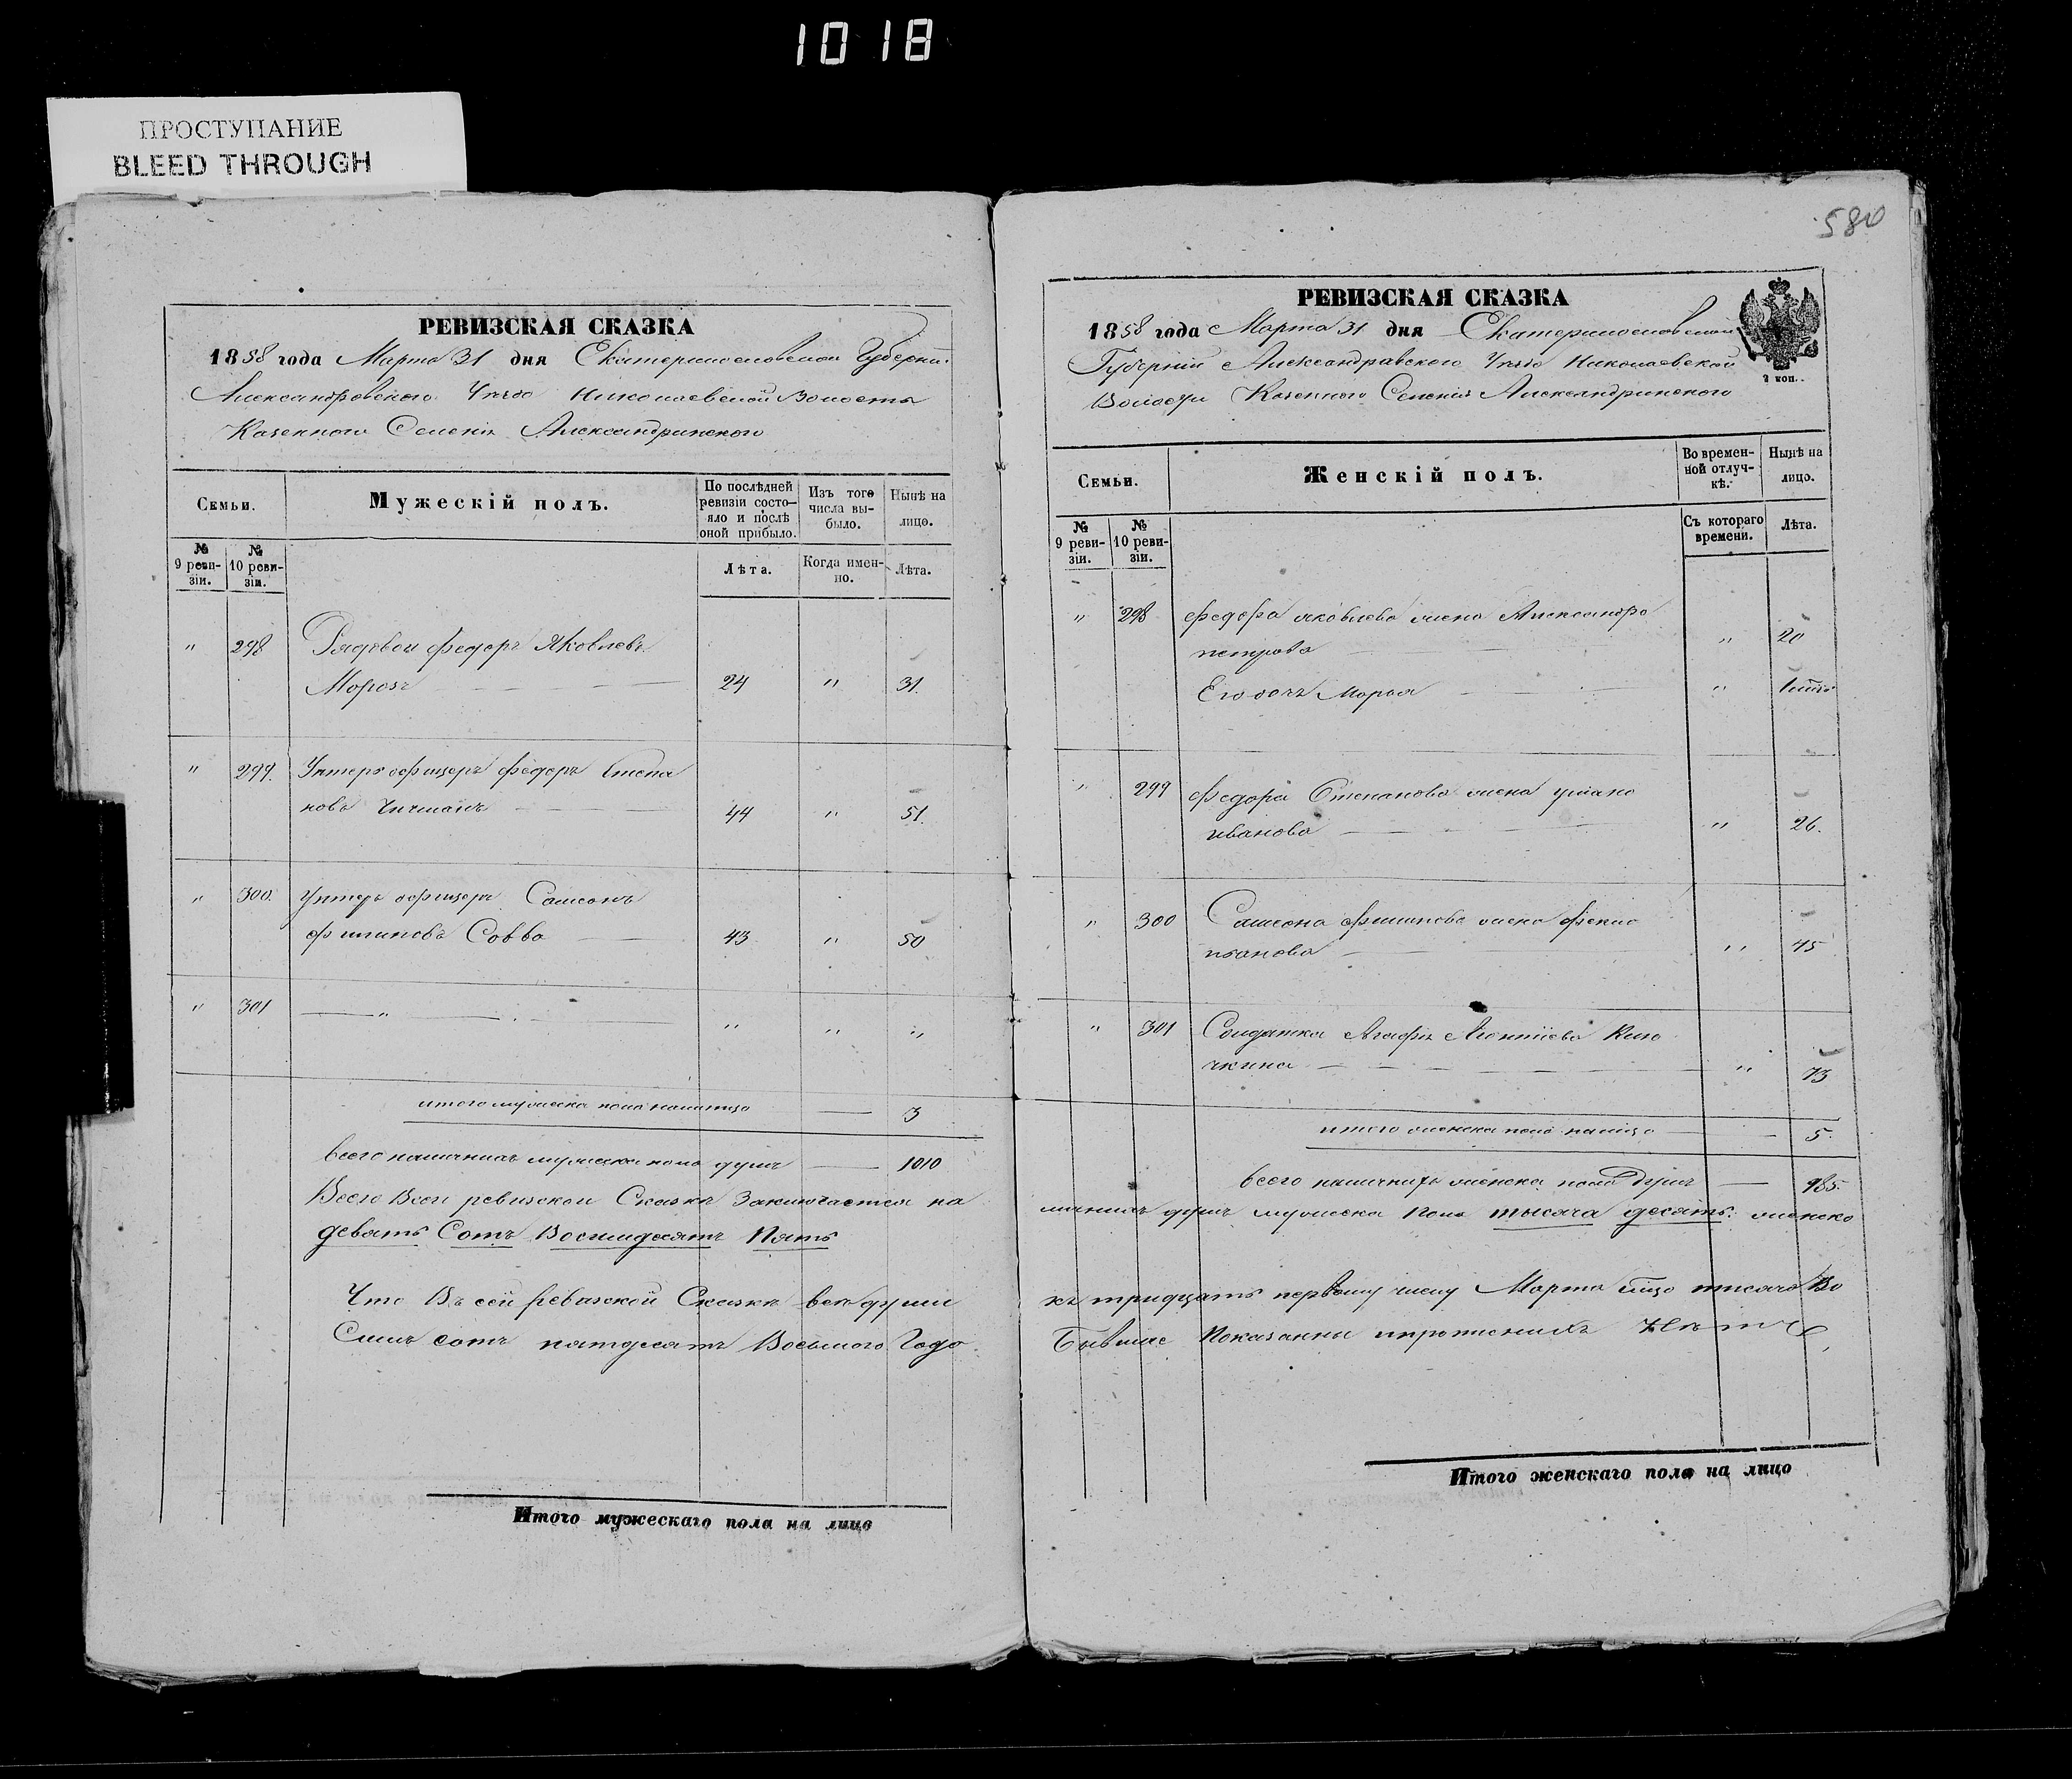 1018
ПРОСТУПАНИЕ
BLEED THROUGH
580
РЕВИЗСКАЯ СКАЗКА
1858 года Марта 31 дня Екатеринославской Губерніи
Александровского Уезда Николаевской Волости
Казенного Селенія Александринского
Семьи.
Мужескій полъ.
По послѣдней ревизіи состо-
яло и послѣ оной прибыло.
Изъ того числа вы-
было.
Нынѣ на лицо.
№ 9 реви-
зіи.
№ 10 реви-
зіи.
Лѣта.
Когда имен-
но.
Лѣта.
" 298 Рядовой федоръ Яковлевъ
Морозъ 24 " 31.
" 299. Унтеръ офицеръ федоръ Степа
новъ 44 " 51.
" 300. Унтеръ офицеръ Самсонъ
филиповъ Савва 43 " 50
" 301 " " " "
итого мужеска пола налицо 3
Всего наличныхъ мужеска пола душъ 1010
Всего Всей ревизской Сказке Заключается на
девять Сотъ Восимдесятъ Пять
Что Въ сей ревизской Сказке все души
Семь сотъ пятдесятъ Восьмого Года
Итого мужескаго пола на лицо
РЕВИЗСКАЯ СКАЗКА
1858 года Марта 31 дня Екатеринославской
Губерніи Александравского Уезда Николаевской
Волости Казенного Селенія Александринского
2 коп.
Семьи.
Женскій полъ.
Во времен-
ной отлуч-
кѣ.
Нынѣ на лицо.
№ 9 реви-
зіи.
№ 10 реви-
зіи.
Съ котораго времени.
Лѣта.
" 298 федора яковлева жена Александра
петрова " 20
Его дочь Марья "
" 299 федора Степанова жена уліана
иванова " 26.
" 300 Самсона филипова жена
иванова " 45
" 301 Солдатка Агафія Леонтіева
чкина " 73
итого женска пола налицо 5.
всего наличныхъ женска пола душъ 985.
личныхъ душъ мужеска пола тысяча десять. женско
къ тридцать первому числу Марта тисяча Во
Бывшие Показанны и прописныхъ Нетъ
Итого женскаго пола на лицо